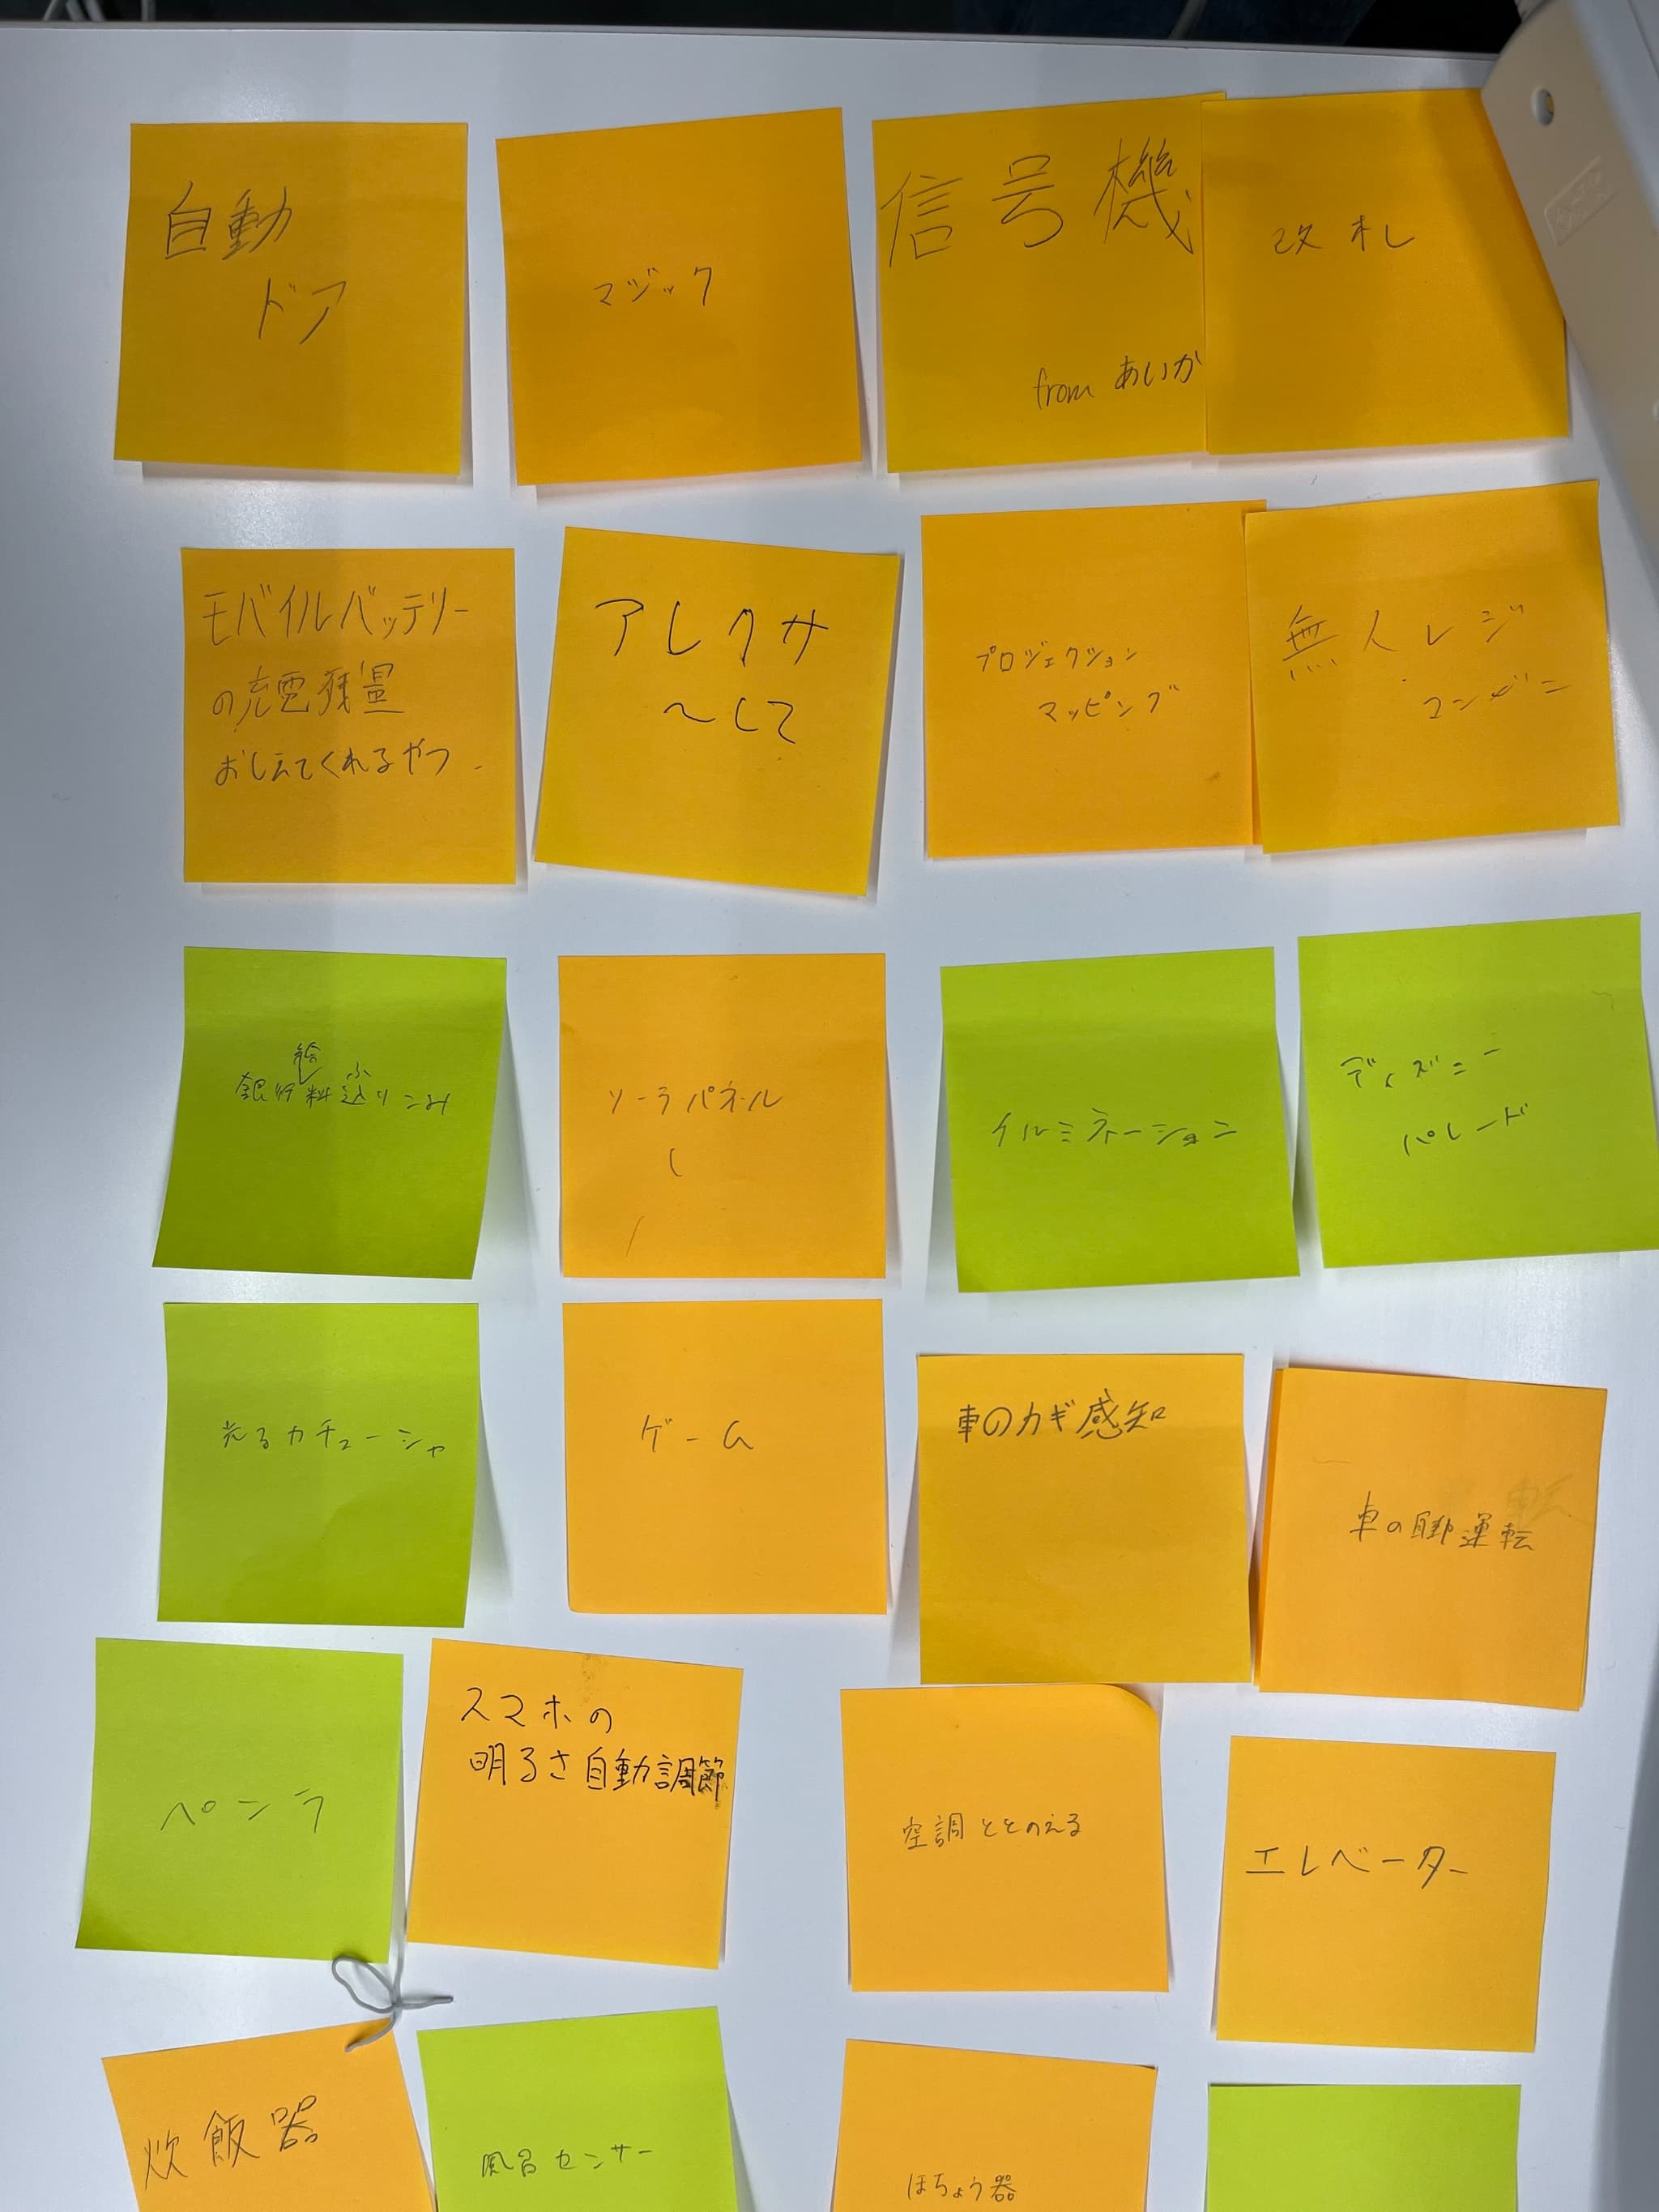 自動
ドア
マジック
信号機
from あいが
改札
モバイルバッテリー
の充電残量
おしえてくれるやつ
アレクサ
〜して
プロジェクション
マッピング
無人レジ
コンビニ
給
ふ
銀行料込りこみ
ソーラパネル
イルミネーション
ディズニー
パレード
光るカチューシャ
ゲーム
車のカギ感知
車の脚運転
ペンラ
スマホの
明るさ自動調節
空調ととのえる
エレベーター
炊飯器
風呂センサー
ほちょう器